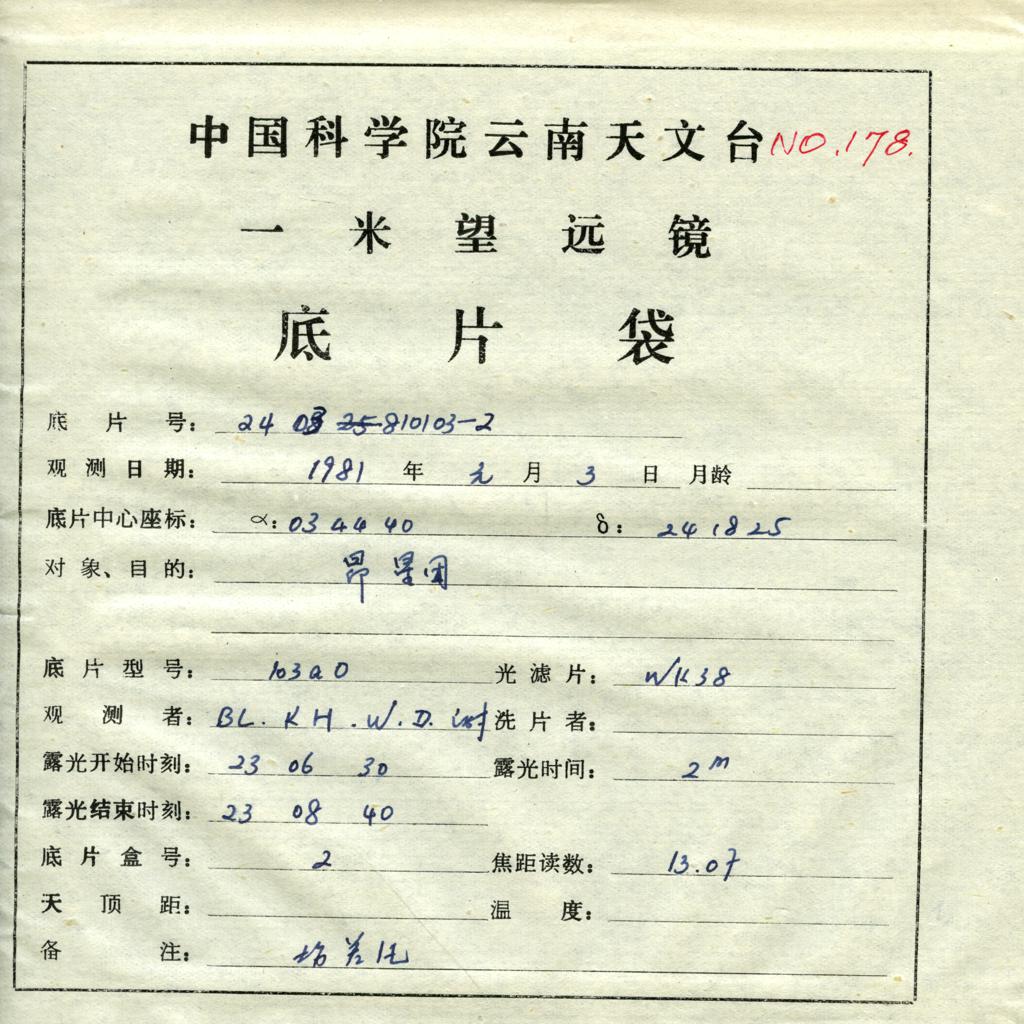 中国科学院云南天文台 NO.178.
一米望远镜
底片袋
底片号: 24 03 25 810103-2
观测日期: 1981 年 元 月 3 日 月龄
底片中心座标: α: 03 44 40 δ: 24 18 25
对象、目的: 昴星团
底片型号: 103aO 光滤片: WK38
观测者: BL. KH. W.D. 洗片者:
露光开始时刻: 23 06 30 露光时间: 2m
露光结束时刻: 23 08 40
底片盒号: 2 焦距读数: 13.07
天顶距: 温度:
备注: